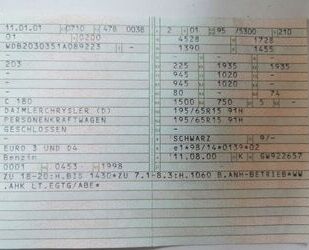 11.01.01 0710 478 0038 2 01 95 /5300 210
01 0200 4528 1728
WDB2030351A089223 - 1390 1455
-
203 225 1935 1935
- 945 1020 -
- 945 1020 -
- 80 - 74
C 180 1500 750 5 -
DAIMLERCHRYSLER (D) 195/65R15 91H
PERSONENKRAFTWAGEN 195/65R15 91H
GESCHLOSSEN -
- SCHWARZ 9/-
EURO 3 UND D4 e1*98/14*0139*02
Benzin 11.08.00 K GW922657
0001 0453 1998
ZU 18-20:H.BIS 1430*ZU 7.1-8.3:H.1060 B.ANH-BETRIEB*WW
.AHK LT.EGTG/ABE*